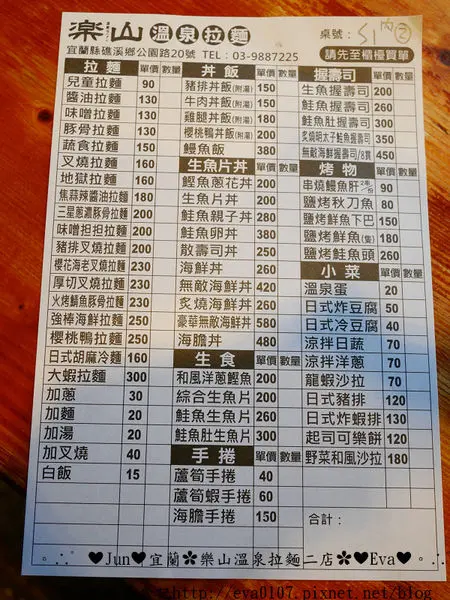 楽山 溫泉拉麵
桌號： S1 內 ②
宜蘭縣礁溪鄉公園路20號 TEL：03-9887225
請先至櫃檯買單
拉麵 單價 數量
兒童拉麵 90
醬油拉麵 130
味噌拉麵 130
豚骨拉麵 130
蔬食拉麵 150
叉燒拉麵 160
地獄拉麵 160
焦蒜辣醬油拉麵 180
三星蔥濃豚骨拉麵 200
味噌担担拉麵 200
豬排叉燒拉麵 200
櫻花海老叉燒拉麵 230
厚切叉燒拉麵 230
火烤鯖魚豚骨拉麵 230
強棒海鮮拉麵 250
櫻桃鴨拉麵 250
日式胡麻冷麵 160
大蝦拉麵 300
加蔥 30
加麵 20
加湯 20
加叉燒 40
白飯 15
丼飯 單價 數量
豬排丼飯(附湯) 150
牛肉丼飯(附湯) 150
雞腿丼飯(附湯) 180
櫻桃鴨丼飯(附湯) 200
鰻魚飯 380
生魚片丼 單價 數量
鰹魚蔥花丼 200
生魚片丼 200
鮭魚親子丼 280
鮭魚卵丼 380
散壽司丼 200
海鮮丼 260
無敵海鮮丼 420
炙燒海鮮丼 260
豪華無敵海鮮丼 580
海膽丼 480
生食 單價 數量
和風洋蔥鰹魚 200
綜合生魚片 200
鮭魚生魚片 260
鮭魚肚生魚片 300
手捲 單價 數量
蘆筍手捲 40
蘆筍蝦手捲 60
海膽手捲 150
握壽司 單價 數量
生魚握壽司 200
鮭魚握壽司 260
鮭魚肚握壽司 300
炙燒明太子鮭魚握壽司 350
無敵海鮮握壽司/8貫 450
烤物 單價 數量
串燒鰻魚肝2串/份 90
鹽烤秋刀魚 80
鹽烤鮮魚下巴 150
鹽烤鮮魚(隻) 180
鹽烤鮭魚頭 260
小菜 單價 數量
溫泉蛋 20
日式炸豆腐 50
日式冷豆腐 40
涼拌日蔬 70
涼拌洋蔥 70
龍蝦沙拉 70
日式豬排 120
日式炸蝦排 130
起司可樂餅 120
野菜和風沙拉 180
合計：
♥Jun♥宜蘭✿樂山溫泉拉麵二店✿♥Eva♥
http://eva0107.pixnet.net/blog